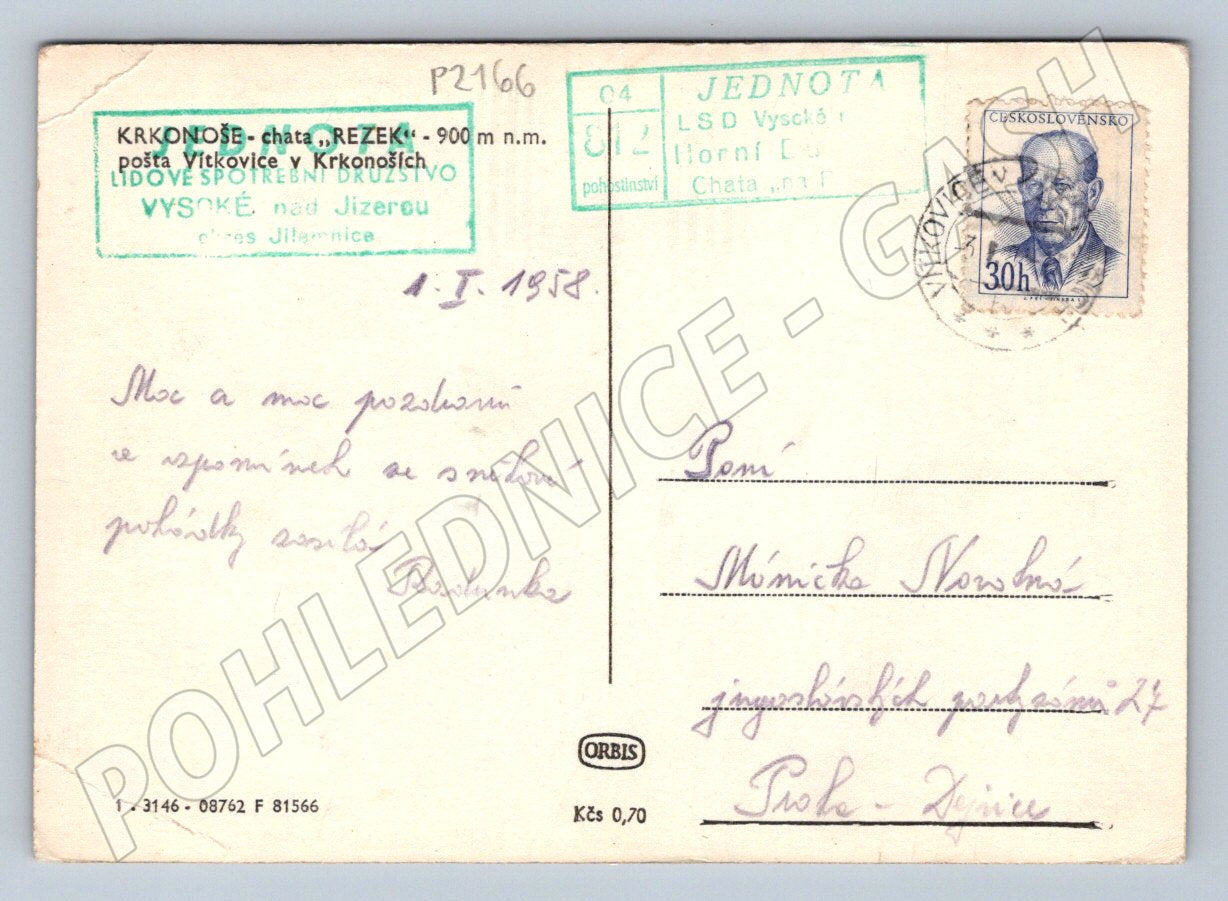 P2166
KRKONOŠE - chata „REZEK“ - 900 m n.m.
pošta Vítkovice v Krkonoších
JEDNOTA
LIDOVÉ SPOTŘEBNÍ DRUŽSTVO
VYSOKÉ nad Jizerou
okres Jilemnice
04
812
pohostinství
JEDNOTA
LSD Vysoké
Horní
Chata „na
ČESKOSLOVENSKO
30h
VÍTKOVICE v
1. I. 1958.
Moc a moc pozdravů
ve vzpomínkách ze sněhové
pohádky zasílá
Radunka
Paní
Mánička Novotná
jugoslávských partyzánů 27
Praha - Dejvice
ORBIS
Kčs 0,70
1 - 3146 - 08762 F 81566
POHLEDNICE - GASH